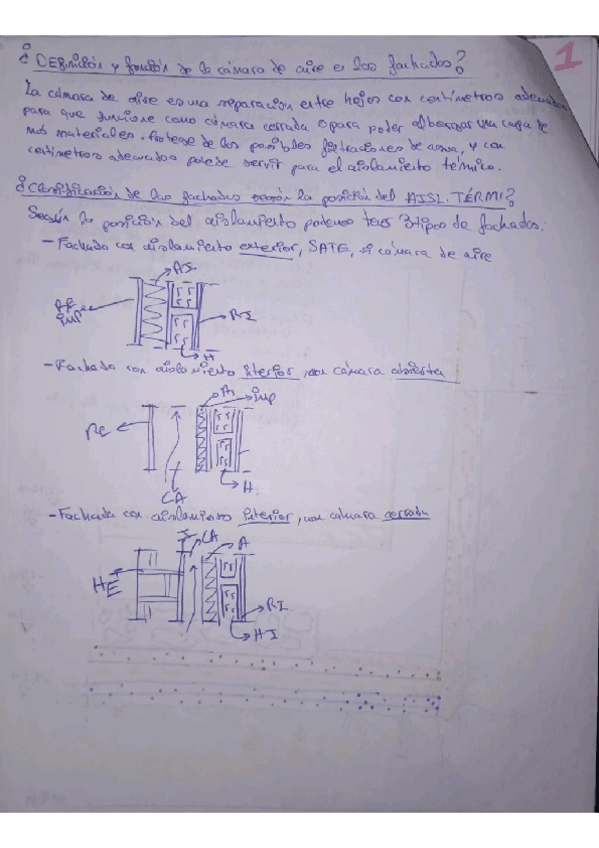 1
¿Definición y función de la cámara de aire en las fachadas?
La cámara de aire es una separación entre hojas con centímetros adecuados
para que funcione como cámara cerrada o para poder albergar una capa de
más materiales. Protege de las posibles filtraciones de agua, y con
centímetros adecuados potede servir para el aislamiento térmico.
¿Clasificación de las fachadas según la posición del AISL. TÉRMI?
Según la posición del aislamiento podemos tener 3 tipos de fachadas:
- Fachada con aislamiento exterior, SATE, cámara de aire
AI.
RE
imp
RI
H
- Fachada con aislamiento interior, con cámara abierta
A
imp
RE
H
CA
- Fachada con aislamiento interior, con cámara cerrada
CA
A
HE
RI
HI